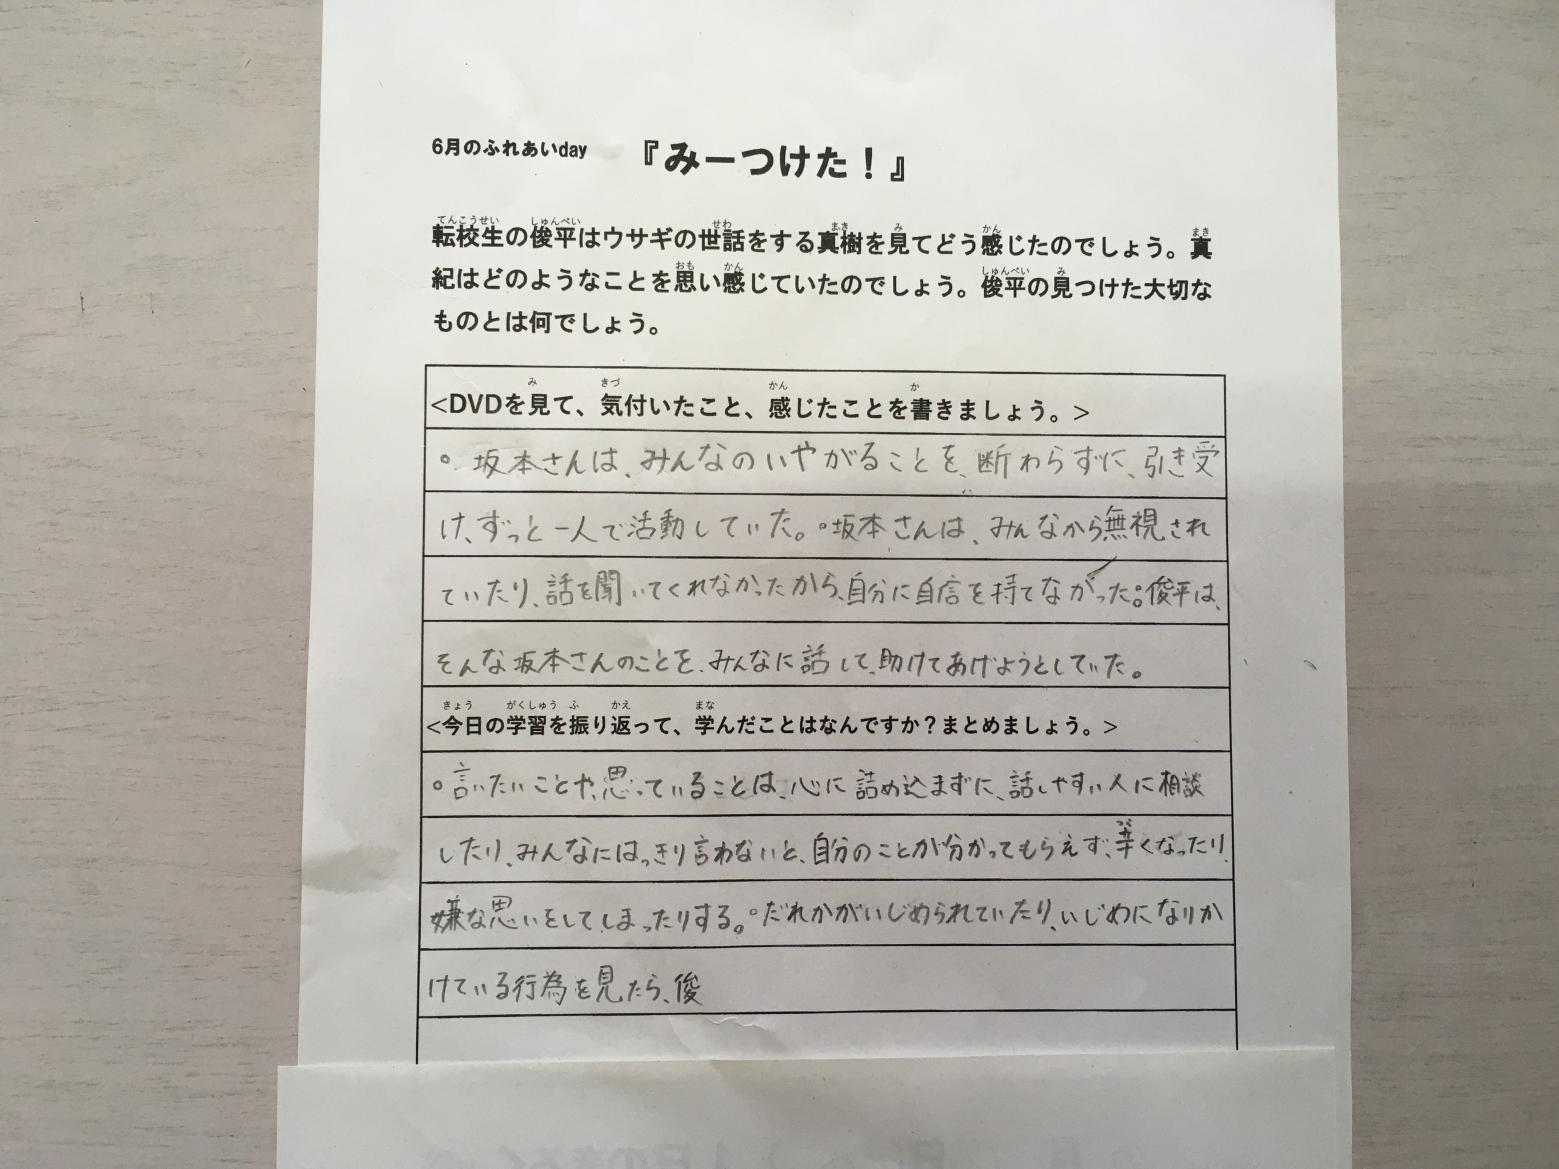 6月のふれあいday 『みーつけた！』
転校生の俊平はウサギの世話をする真樹を見てどう感じたのでしょう。真
紀はどのようなことを思い感じていたのでしょう。俊平の見つけた大切な
ものとは何でしょう。
<DVDを見て、気付いたこと、感じたことを書きましょう。>
。坂本さんは、みんなのいやがることを、断わらずに、引き受
け、ずっと一人で活動していた。。坂本さんは、みんなから無視され
ていたり、話を聞いてくれなかったから、自分に自信を持てなかった。俊平は、
そんな坂本さんのことを、みんなに話して、助けてあげようとしていた。
<今日の学習を振り返って、学んだことはなんですか？まとめましょう。>
。言いたいことや、思っていることは、心に詰め込まずに、話しやすい人に相談
したり、みんなにはっきり言わないと、自分のことが分かってもらえず、辛くなったり、
嫌な思いをしてしまったりする。。だれかがいじめられていたり、いじめになりか
けている行為を見たら、俊